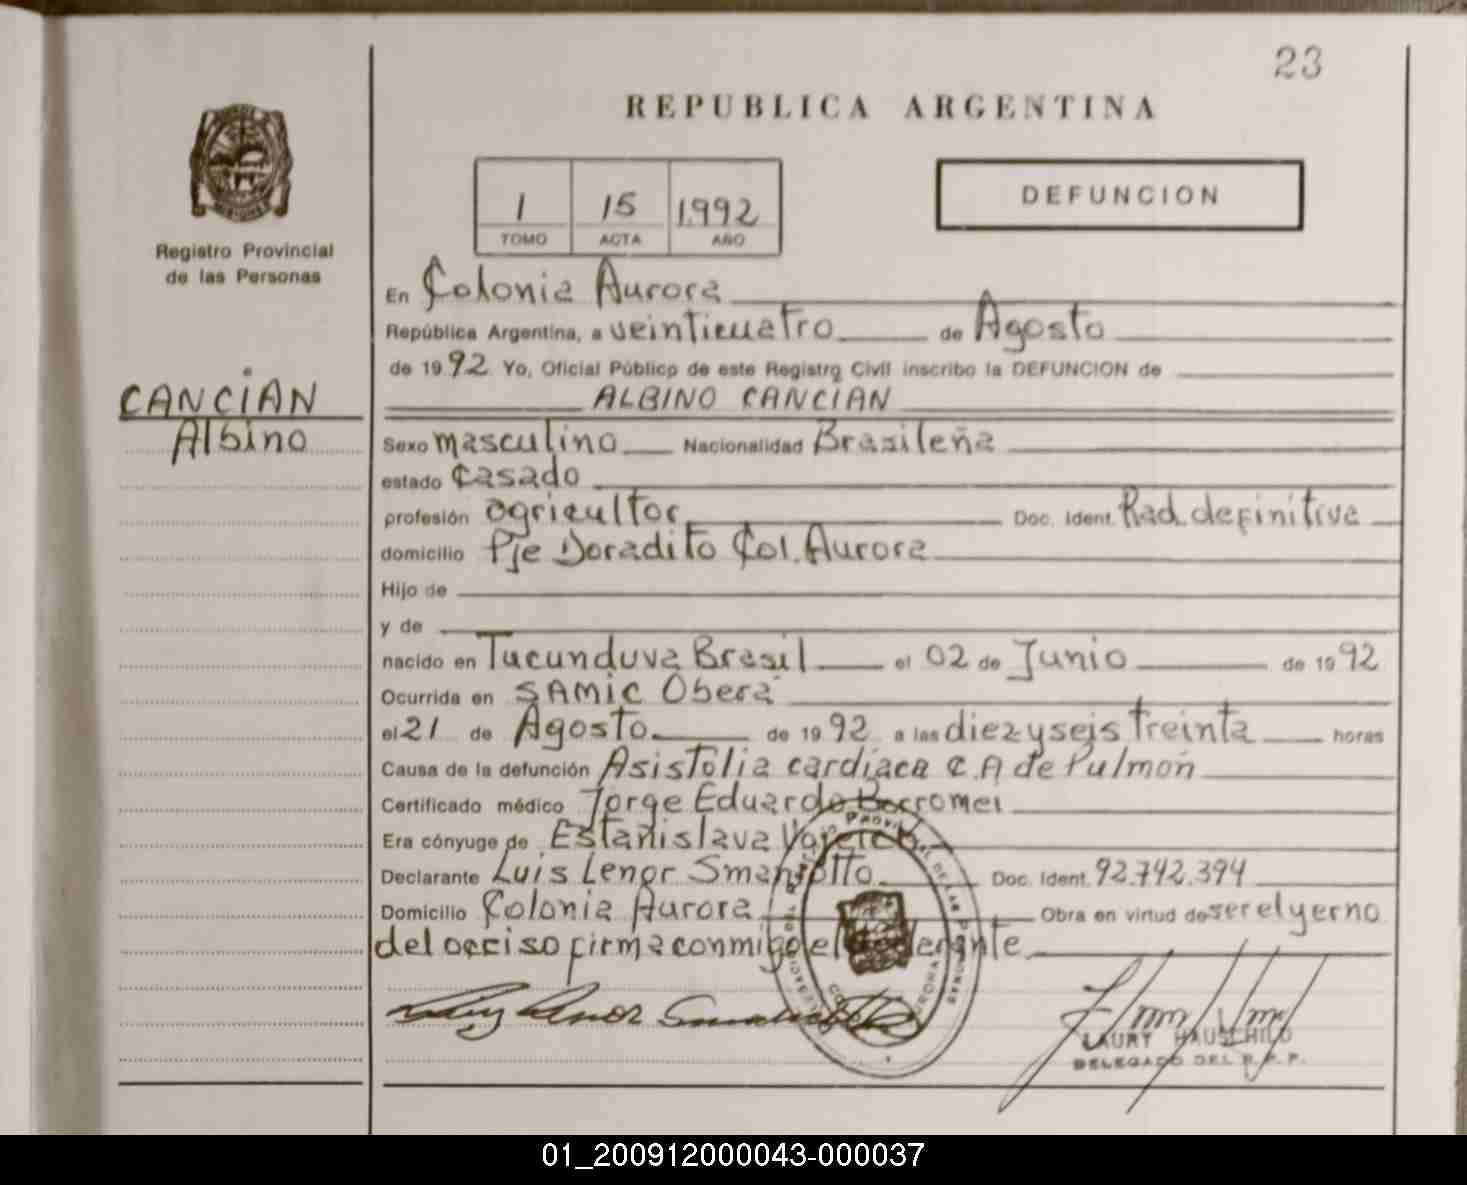 23
REPUBLICA ARGENTINA
1 15 1.992
TOMO ACTA AÑO
DEFUNCION
Registro Provincial
de las Personas
En Colonia Aurora
República Argentina, a veinticuatro de Agosto
de 1992 Yo, Oficial Público de este Registro Civil inscribo la DEFUNCION de
CANCIAN
ALBINO CANCIAN
Albino
Sexo masculino Nacionalidad Brasileña
estado Casado
profesión agricultor Doc. Ident. Rad. definitiva
domicilio Pje Doradito Col. Aurora
Hijo de
y de
nacido en Tucunduva Brasil el 02 de Junio de 1992
Ocurrida en SAMIC Oberá
el 21 de Agosto de 1992 a las diez y seis treinta horas
Causa de la defunción Asistolia cardíaca C.A de Pulmón
Certificado médico Jorge Eduardo Borromei
Era cónyuge de Estanislava
Declarante Luis Lenor Smaniotto Doc. Ident. 92.742.394
Domicilio Colonia Aurora Obra en virtud de ser el yerno
del occiso firma conmigo el
REGISTRO PROVINCIAL DE LAS PERSONAS
LAURY HAUSCHILD
DELEGADO DEL R.P.P.
01_200912000043-000037